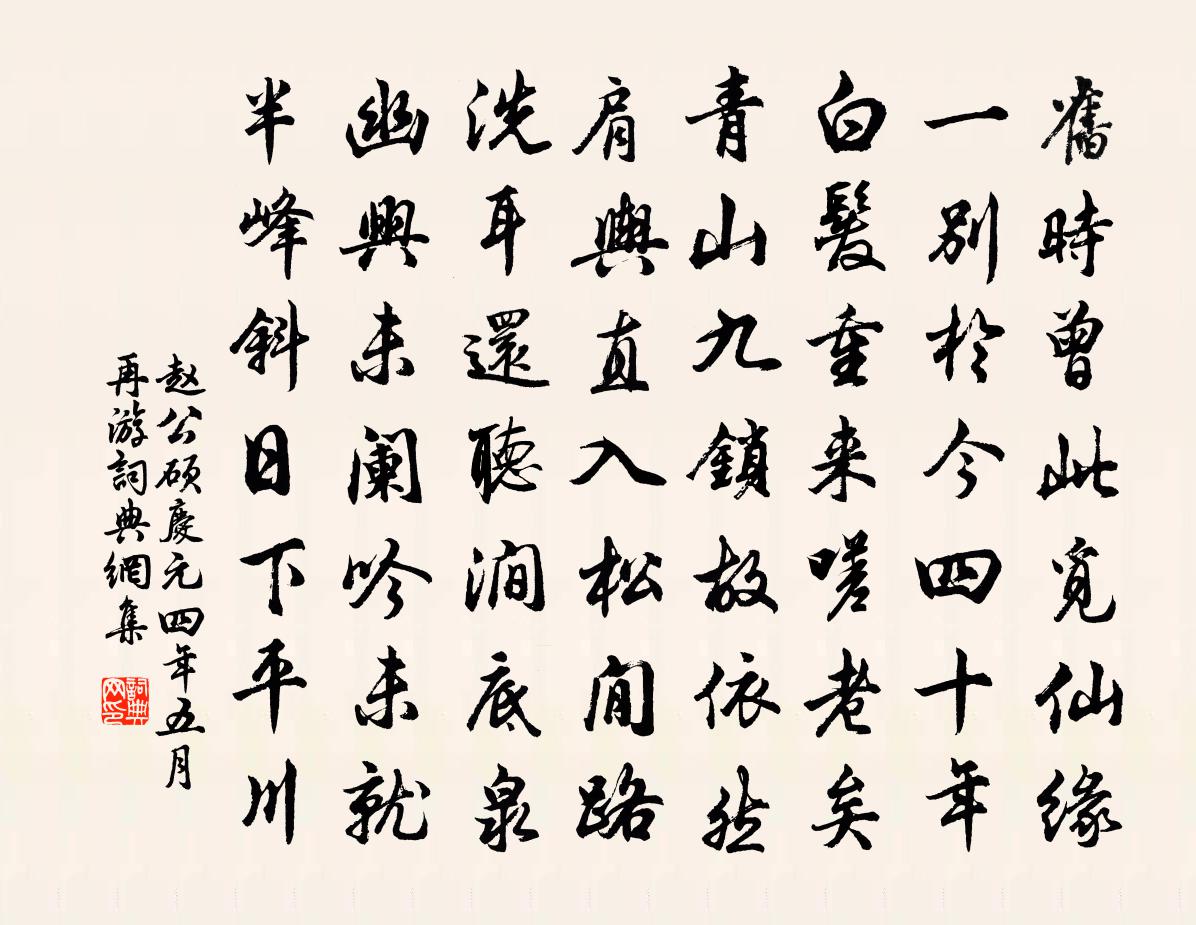 舊時曾此覓仙緣
一別於今四十年
白髮重来嗟老矣
青山九鎖故依然
肩輿直入松間路
洗耳還聽澗底泉
幽興未闌吟未就
半峰斜日下平川
赵公硕慶元四年五月
再游詞典網集
詞典网印